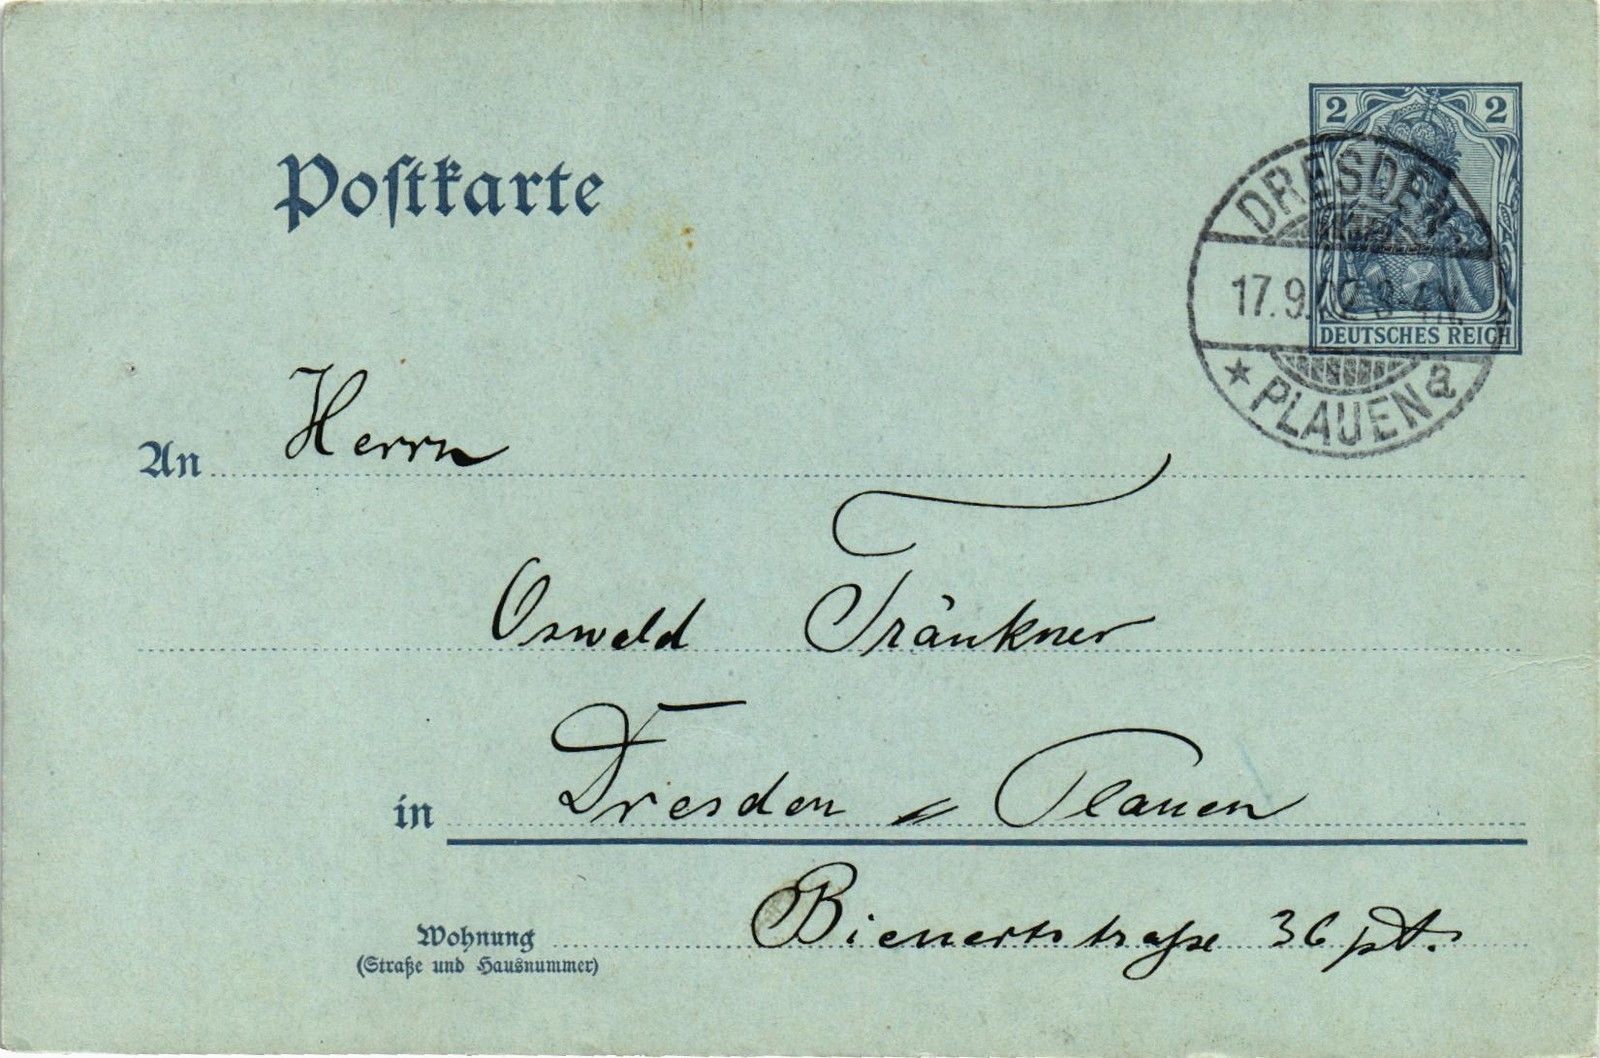 Postkarte
2 2
DEUTSCHES REICH
DRESDEN
17.9.02 3-4N.
* PLAUEN a
An Herrn
Oswald Tränkner
in Dresden = Plauen
Wohnung Bienertstraße 36 pt.
(Straße und Hausnummer)